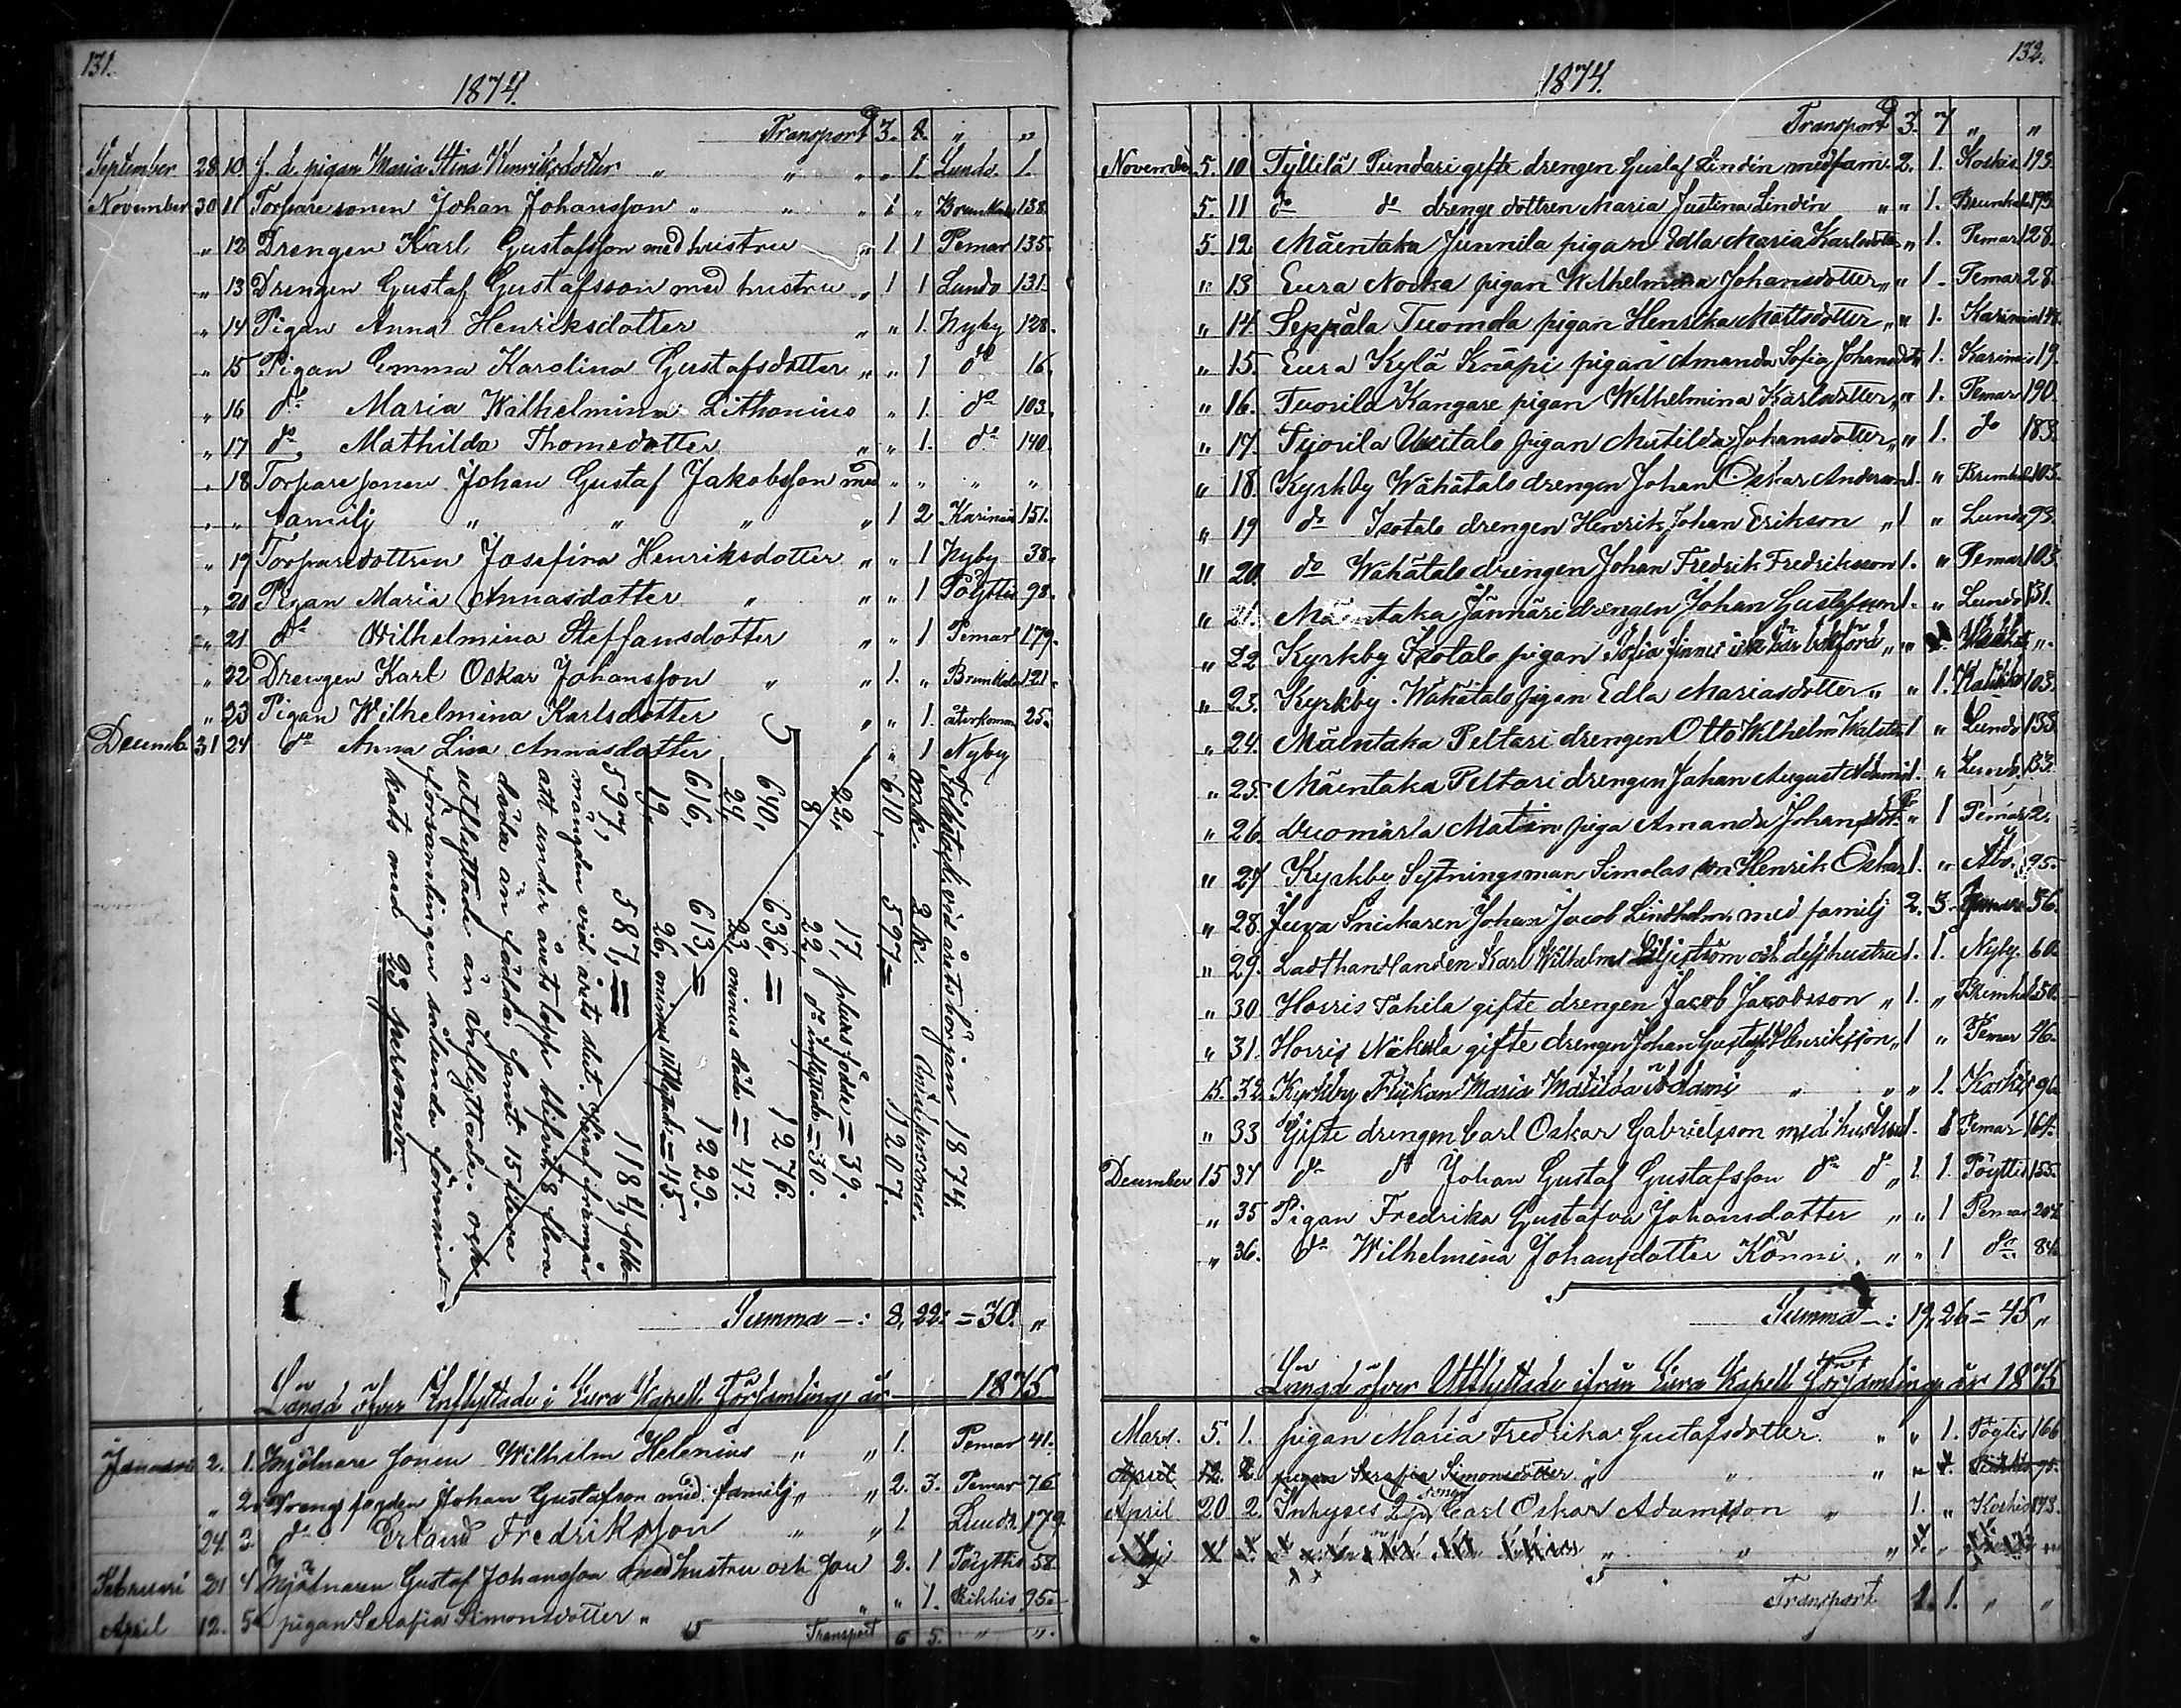 131.
1874.
Transport 3. 2. " "
September 28 10 f. d. pigan Maria Stina Henriksdotter " " " 1. Lundo. 1.
November 30 11 Torparesonen Johan Johansson " " " 1 " Brunkala 138.
" 12 Drengen Karl Gustafsson med hustru " 1 1 Pemar 135.
" 13 Drengen Gustaf Gustafsson med hustru " 1 1 Lundo 131.
" 14 Pigan Anna Henriksdotter " " 1. Nyby 128.
" 15 Pigan Emma Karolina Gustafsdotter " " 1 do 16.
" 16 do Maria Wilhelmina Lithonius " 1. do 103.
" 17 do Mathilda Thomsdotter " " 1. do 140.
" 18 Torparesonen Johan Gustaf Jakobsson med " " " "
" " familj " " " " 1 2 Karinais 151.
" 19 Torparedottren Josefina Henriksdotter " " 1 Nyby 38.
" 20 Pigan Maria Annasdotter " " " 1 Pöyttis 98.
" 21 do Wilhelmina Steffansdotter " " 1 Pemar 179.
" 22 Drengen Karl Oskar Johansson " " 1. " Brunkala 121.
" 23 Pigan Wilhelmina Karlsdotter " " 1. återkommen 25.
Decemb. 31 24 do Anna Lisa Annasdotter " 1 Nyby
Folkstock vid årets början 1874.
mk. 2 k. Andra personer.
610, 597 = 1207.
22, 17, plures födde = 39.
8, 22, do inflyttade = 30.
640, 636, = 1276.
24, 23, minus döde = 47.
616, 613, = 1229.
19, 26, minus utflyttade = 45.
597, 587, = 1184, folk-
mängden vid årets slut. Häraf framgår
att under årets lopp blifvit 8 flera
döda än födda; samt 15 flera
utflyttade än inflyttade, och
församlingen således förmins-
kats med 23 personer.
Summa —: 8, 22: = 30. "
Längd öfver Inflyttade i Eura Kapell Församling år 1875
Januari 2. 1. Mjölnare sonen Wilhelm Helenius " " 1. Pemar 41.
" 2. Drengs fogden Johan Gustafson med familj " " 2. 3. Pemar 76
24. 3. do Erland Fredriksson " " 1. Lundo. 179
Februari 21 4 Mjölnaren Gustaf Johansson med hustru och son 2. 1 Pöyttis 58.
April 12. 5 pigan Serafia Simonsdotter " " " 1. Kikkis 95.
Transport 6 5. " ".
132.
1874.
Transport 3. 7 " "
November 5. 10. Tyllilä Pundari gifte drengen Gustaf Lindin med fam. 2. 1. Koskis 193.
5. 11 do do drengs dottren Maria Justina Lindin " " 1. Brunkala 193.
5. 12. Mäentaka Junnila pigan Edla Maria Karlsdotter " 1. Pemar 128.
" 13 Eura Nocka pigan Wilhelmina Johansdotter " " 1. Pemar 28.
" 14. Seppälä Tuomola pigan Henrika Mattsdotter " " 1. Karinais
" 15. Eura Kylä Knäpi pigan Amanda Sofia Johansdotter 1. Karinais 19.
" 16. Tuorila Kangare pigan Wilhelmina Karlsdotter " " 1. Pemar 190.
" 17. Tuorila Uutitalo pigan Matilda Johansdotter " " 1. do 183.
" 18. Kyrkby Wähätalo drengen Johan Oskar Anderson 1. " Brunkala 103.
" 19 do Isotalo drengen Henrik Johan Erikson " 1 " Lundo 93.
" 20. do Wähätalo drengen Johan Fredrik Fredriksson 1. " Pemar 103.
" 21. Mäentaka Jännäri drengen Johan Gustafson 1. " Lundo 131.
" 22 Kyrkby Isotalo pigan Sofia finnes icke här bokförd " "
" 23. Kyrkby Wähätalo pigan Edla Mariasdotter " " 1. 103.
" 24. Mäentaka Peltari drengen Otto Wilhelm 1 " Lundo 133.
" 25. Mäentaka Peltari drengen Johan August 1. " Lundo. 133.
" 26. Tuomarla Matin piga Amanda Johansdotter " 1 Pemar 2.
" 27 Kyrkby Sytningsman Simolas son Henrik Oskar 1. " Åbo. 95.
" 28. Juva Snickaren Johan Jacob Lindholm med familj 2. 3. 56.
" 29. Ladthandlanden Karl Wilhelm Liljeström och dess hustru 1. 1. Nyby. 60.
" 30. Horris Tahila gifte drengen Jacob Jacobsson " 1. " Brunkala 50.
" 31. Horris Näkula gifte drengen Johan Gustaf Henriksson " 1 " Pemar 46.
15. 32. Kyrkby Flickan Maria Matilda Adami " " " 1. Koskis 96
" 33 Gifte drengen Carl Oskar Gabrielsson med hustru 1. 1 Pemar 164.
December 15 34 do do Johan Gustaf Gustafsson do do " 1. 1. Pöyttis 155.
" 35 Pigan Fredrika Gustafva Johansdotter " " 1 Pemar 204
" 36. do Wilhelmina Johansdotter Könni. " " 1 do 84
Summa —: 19, 26 = 45 "
Längd öfver Utflyttade ifrån Eura Kapell Församling år 1875
Mars. 5. 1. pigan Maria Fredrika Gustafsdotter " " 1. Pöytis 166
April 12. 2. pigan Serafia Simonsdotter " " " 1. Kikkis 95.
April 20 2. Inhyses Carl Oskar Adamsson " 1. " Koskis 193.
Transport 1. 1. " "